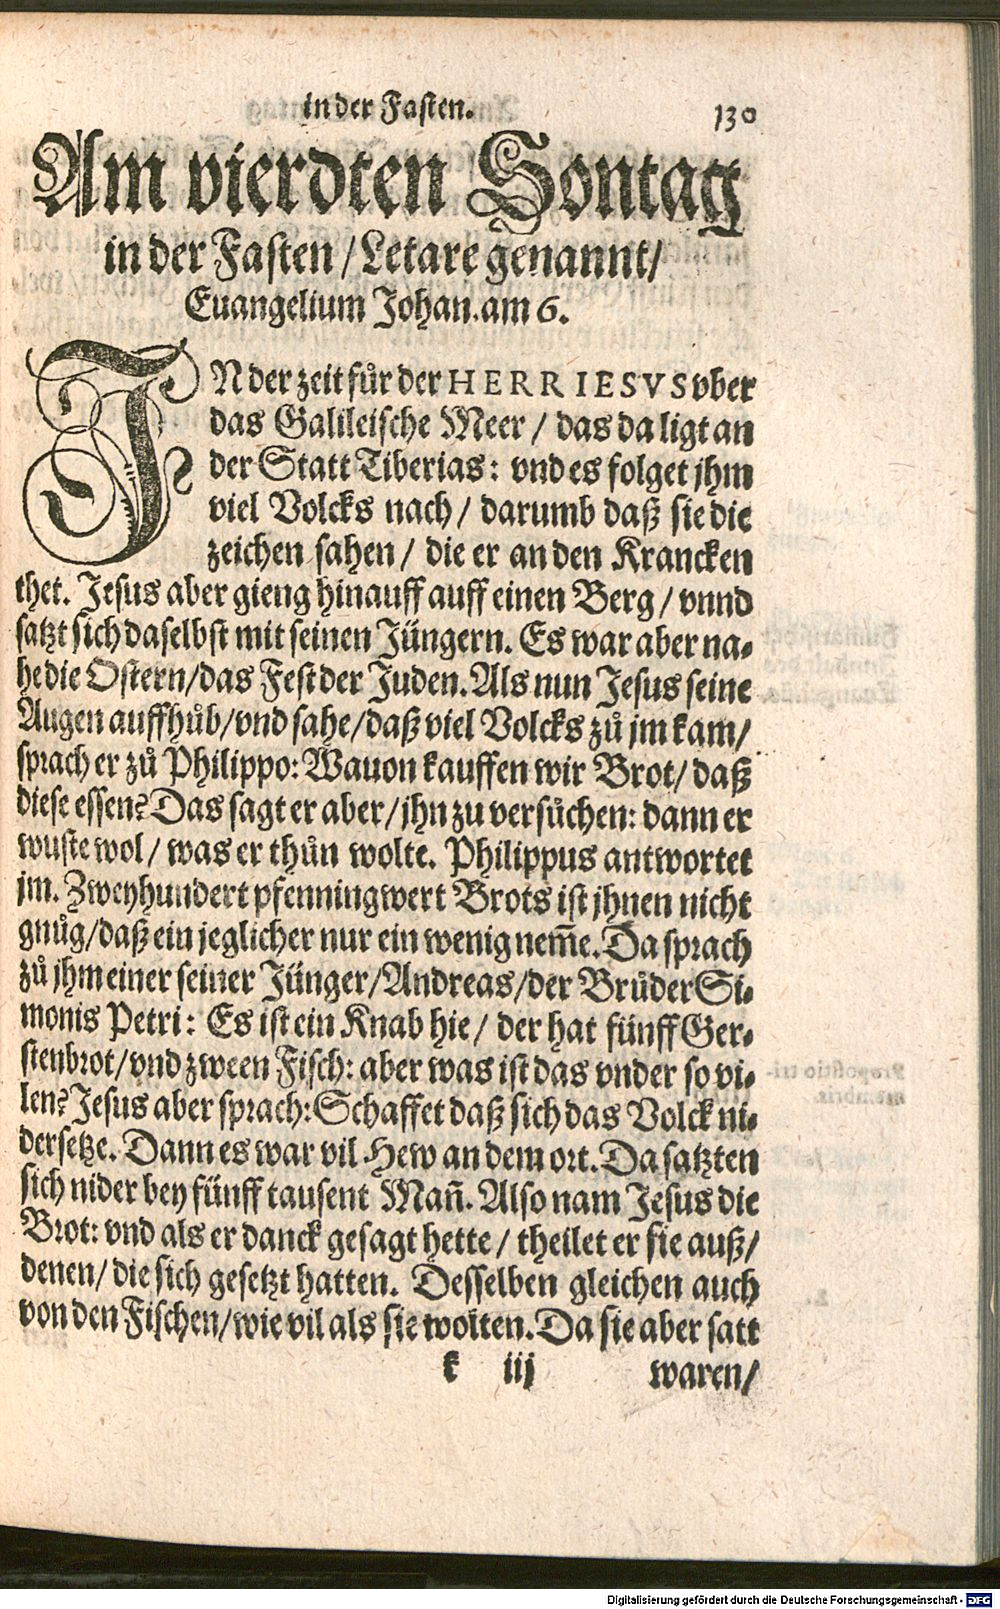 in der Fasten. 130
Am vierdten Sontag
in der Fasten / Letare genannt /
Euangelium Johan. am 6.
IN der zeit fůr der HERR IESVS vber
das Galileische Meer / das da ligt an
der Statt Tiberias: vnd es folget jhm
viel Volcks nach / darumb daß sie die
zeichen sahen / die er an den Krancken
thet. Jesus aber gieng hinauff auff einen Berg / vnnd
satzt sich daselbst mit seinen Jüngern. Es war aber na-
he die Ostern / das Fest der Juden. Als nun Jesus seine
Augen auffhůb / vnd sahe / daß viel Volcks zů jm kam /
sprach er zů Philippo: Wauon kauffen wir Brot / daß
diese essen? Das sagt er aber / jhn zu versůchen: dann er
wuste wol / was er thůn wolte. Philippus antwortet
jm. Zweyhundert pfenningwert Brots ist jhnen nicht
gnůg / daß ein jeglicher nur ein wenig nem̃e. Da sprach
zů jhm einer seiner Jünger / Andreas / der Brůder Si-
monis Petri: Es ist ein Knab hie / der hat fünff Ger-
stenbrot / vnd zween Fisch: aber was ist das vnder so vi-
len? Jesus aber sprach: Schaffet daß sich das Volck ni-
dersetze. Dann es war vil Hew an dem ort. Da satzten
sich nider bey fünff tausent Mañ. Also nam Jesus die
Brot: vnd als er danck gesagt hette / theilet er sie auß /
denen / die sich gesetzt hatten. Desselben gleichen auch
von den Fischen / wie vil als sie wolten. Da sie aber satt
k iij waren /
Digitalisierung gefördert durch die Deutsche Forschungsgemeinschaft - DFG